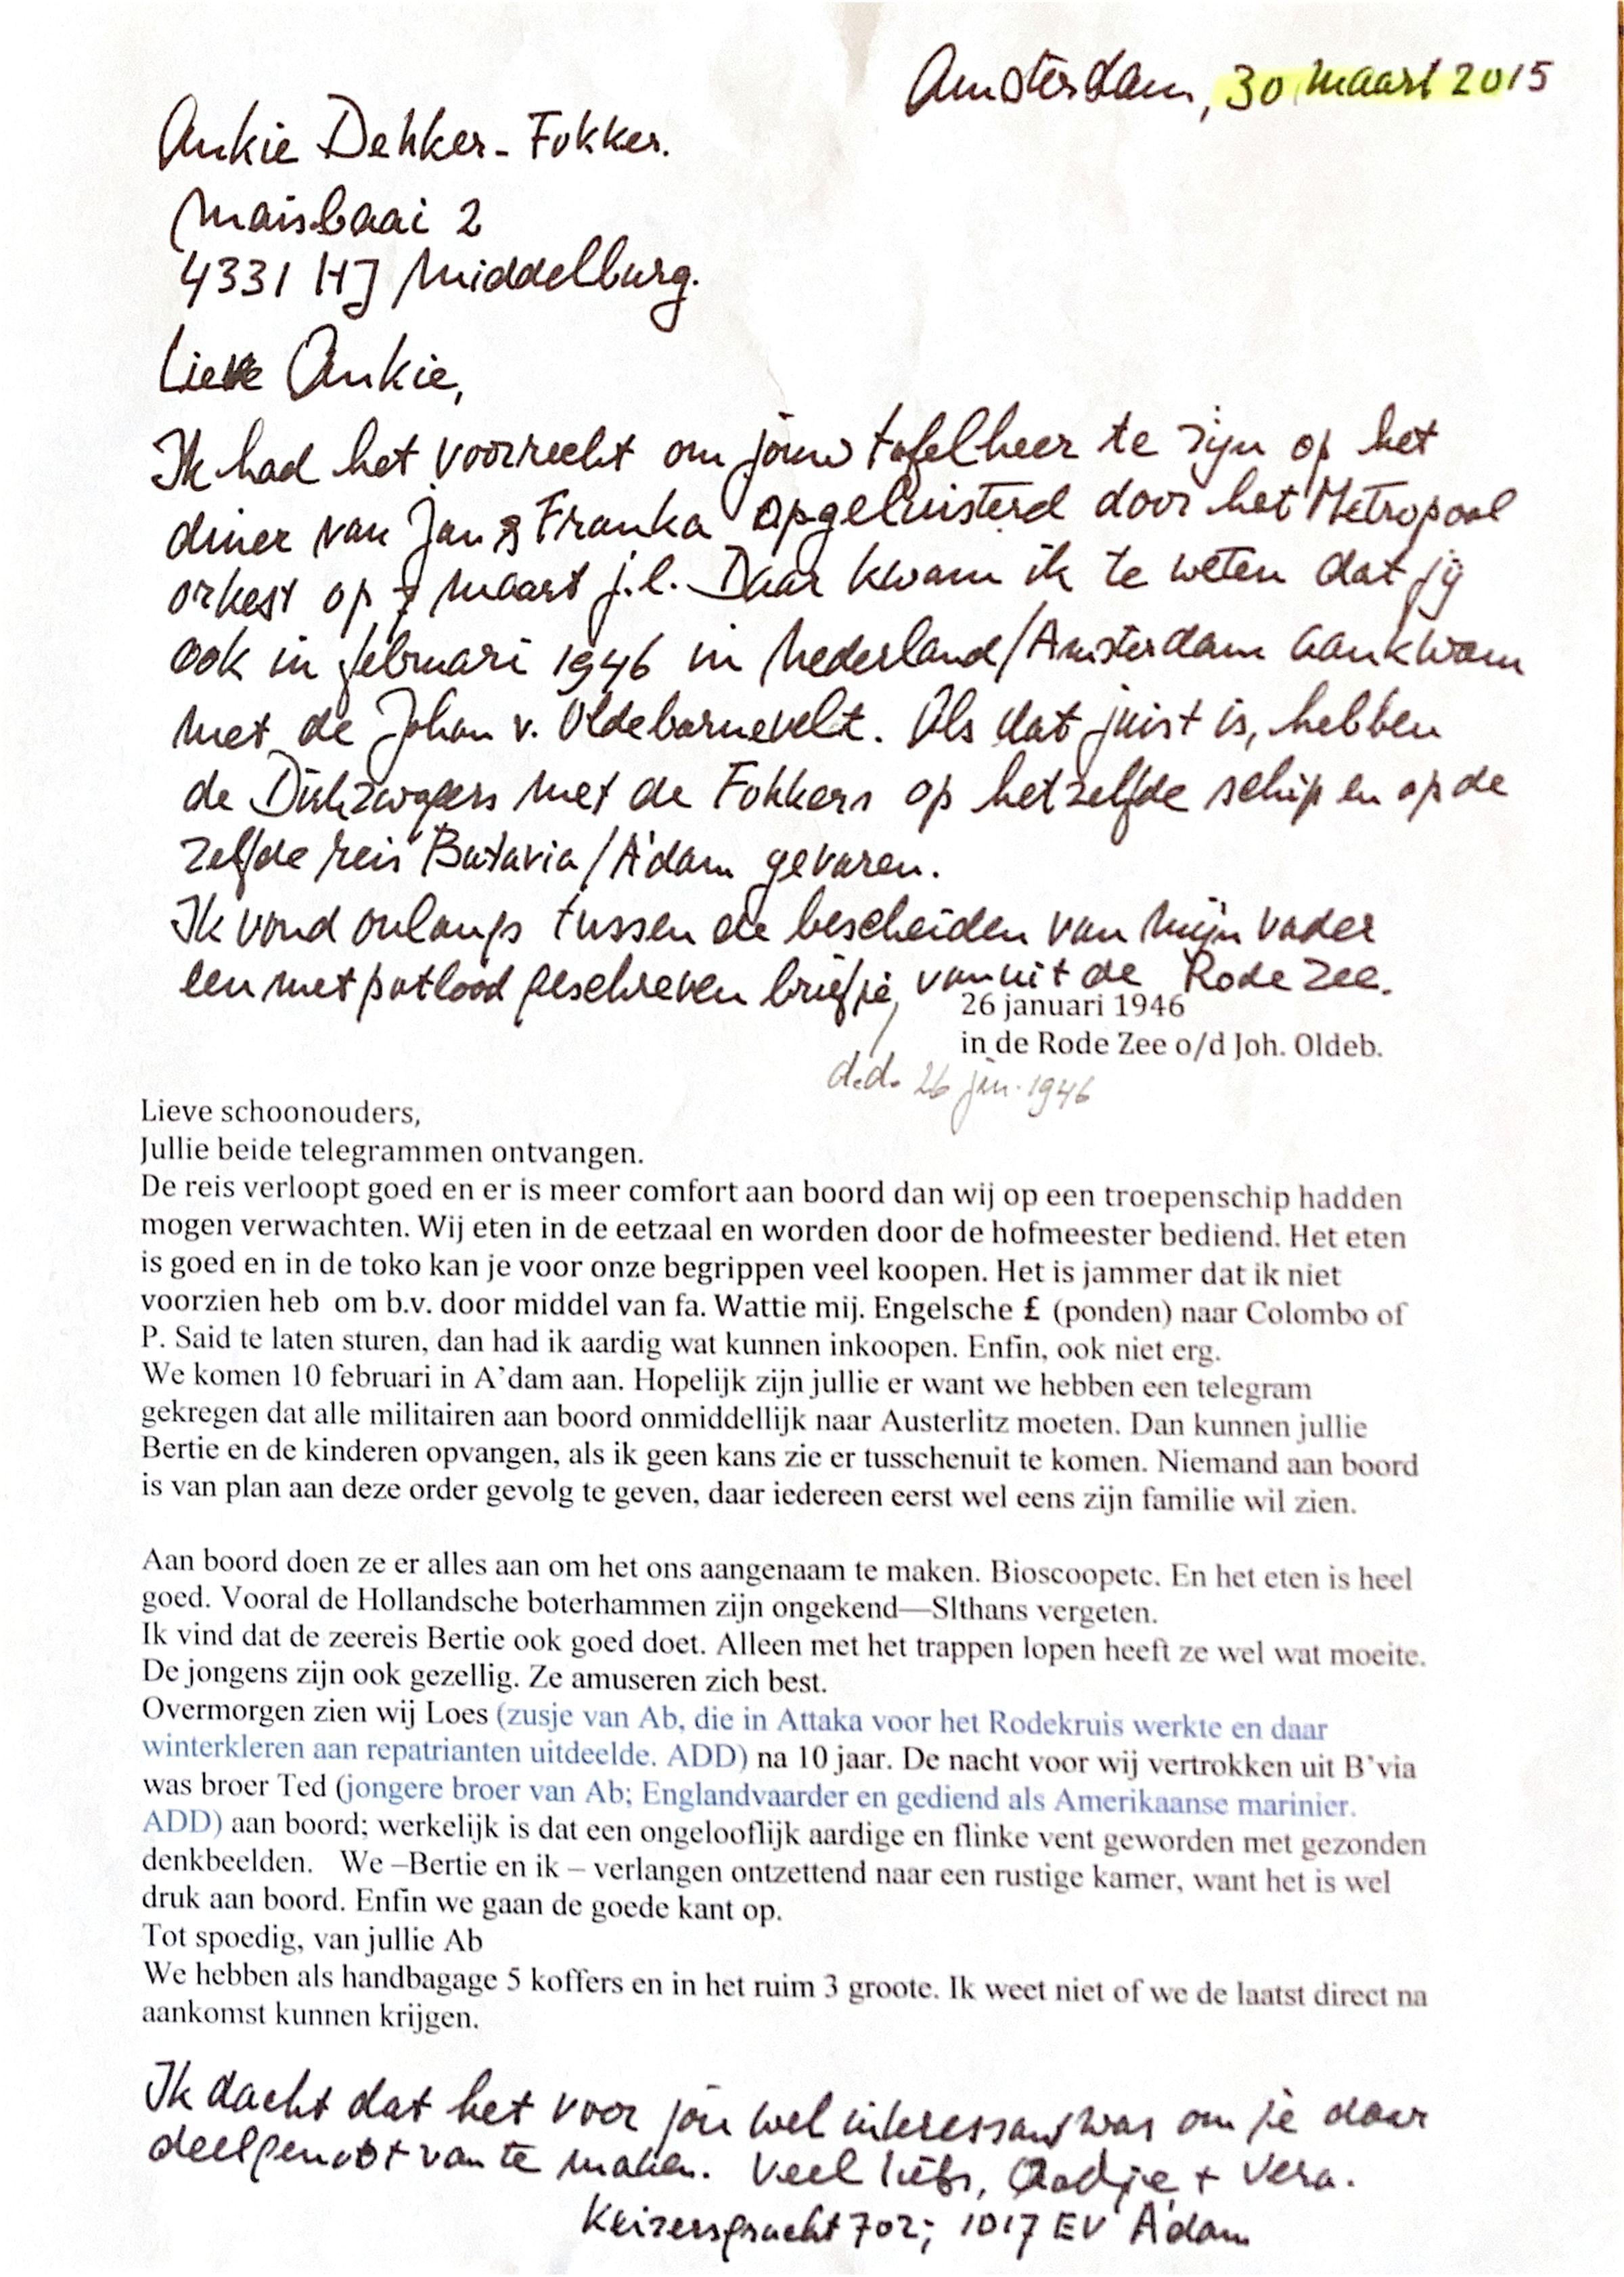 Amsterdam, 30 maart 2015
Ankie Dekker-Fokker.
Maisbaai 2
4331 HJ Middelburg.
Lieve Ankie,
Ik had het voorrecht om jouw tafelheer te zijn op het
diner van Jan & Franka opgeluisterd door het Metropool
orkest op 7 maart j.l. Daar kwam ik te weten dat jij
ook in februari 1946 in Nederland/Amsterdam aankwam
met de Johan v. Oldebarnevelt. Als dat juist is, hebben
de Dikzwagers met de Fokkers op hetzelfde schip en op de
zelfde reis Batavia/A'dam gevaren.
Ik vond onlangs tussen de bescheiden van mijn vader
een met potlood geschreven briefje, vanuit de Rode Zee.
26 januari 1946
in de Rode Zee o/d Joh. Oldeb.
d.d. 26 jan. 1946
Lieve schoonouders,
Jullie beide telegrammen ontvangen.
De reis verloopt goed en er is meer comfort aan boord dan wij op een troepenschip hadden
mogen verwachten. Wij eten in de eetzaal en worden door de hofmeester bediend. Het eten
is goed en in de toko kan je voor onze begrippen veel koopen. Het is jammer dat ik niet
voorzien heb om b.v. door middel van fa. Wattie mij. Engelsche £ (ponden) naar Colombo of
P. Said te laten sturen, dan had ik aardig wat kunnen inkoopen. Enfin, ook niet erg.
We komen 10 februari in A'dam aan. Hopelijk zijn jullie er want we hebben een telegram
gekregen dat alle militairen aan boord onmiddellijk naar Austerlitz moeten. Dan kunnen jullie
Bertie en de kinderen opvangen, als ik geen kans zie er tusschenuit te komen. Niemand aan boord
is van plan aan deze order gevolg te geven, daar iedereen eerst wel eens zijn familie wil zien.
Aan boord doen ze er alles aan om het ons aangenaam te maken. Bioscoopetc. En het eten is heel
goed. Vooral de Hollandsche boterhammen zijn ongekend—Slthans vergeten.
Ik vind dat de zeereis Bertie ook goed doet. Alleen met het trappen lopen heeft ze wel wat moeite.
De jongens zijn ook gezellig. Ze amuseren zich best.
Overmorgen zien wij Loes (zusje van Ab, die in Attaka voor het Rodekruis werkte en daar
winterkleren aan repatrianten uitdeelde. ADD) na 10 jaar. De nacht voor wij vertrokken uit B'via
was broer Ted (jongere broer van Ab; Englandvaarder en gediend als Amerikaanse marinier.
ADD) aan boord; werkelijk is dat een ongelooflijk aardige en flinke vent geworden met gezonden
denkbeelden. We –Bertie en ik – verlangen ontzettend naar een rustige kamer, want het is wel
druk aan boord. Enfin we gaan de goede kant op.
Tot spoedig, van jullie Ab
We hebben als handbagage 5 koffers en in het ruim 3 groote. Ik weet niet of we de laatst direct na
aankomst kunnen krijgen.
Ik dacht dat het voor jou wel interessant was om je daar
deelgenoot van te maken. Veel liefs, Aadje + Vera.
Keizersgracht 702; 1017 EV A'dam